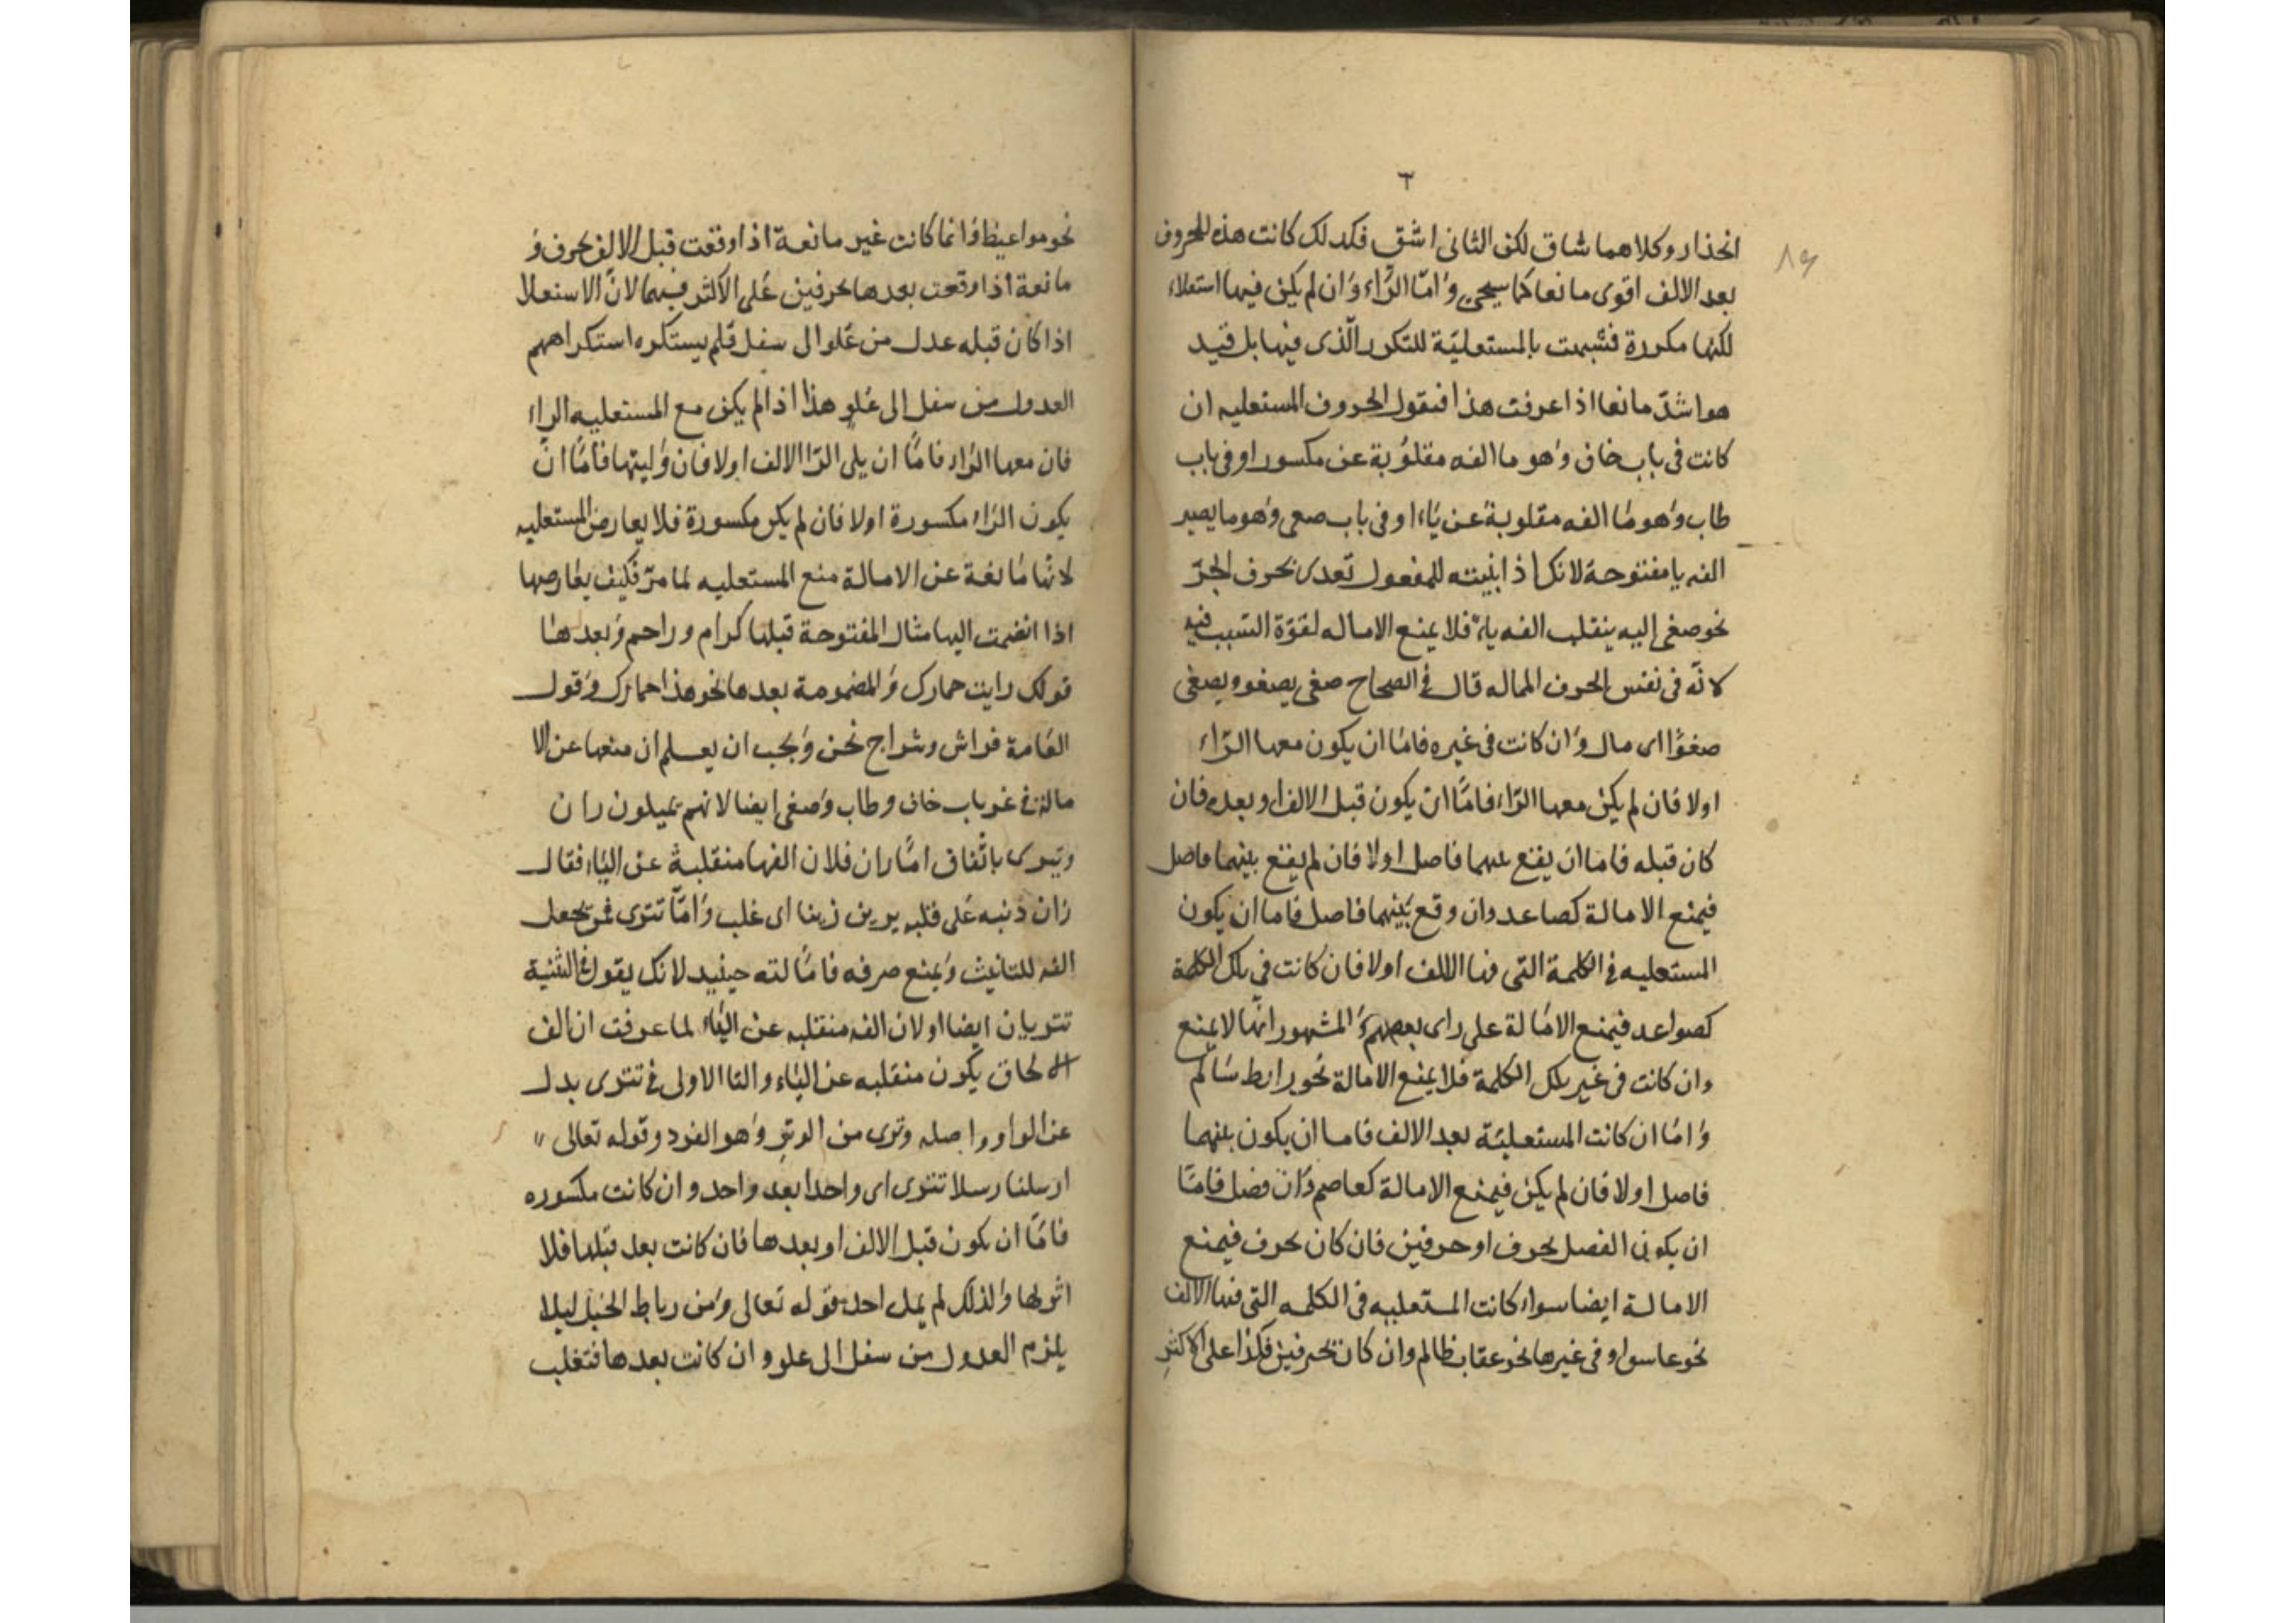 ٣
٨٩
انحذار وكلاهما شاق لكن الثانى اشق فكذلك كانت هذه الحروف
بعد الالف اقوى مانعا كما سيجىء وَامّا الرّاء وَان لم يكن فيها استعلاء
لكنها مكررة فشبهت بالمستعليّة للتكرر الّذى فيها بل قيد
هو اشدّ مانعا اذا عرفت هذا فنقول الحروف المستعليه ان
كانت فى باب خاف وَهو ما الفه مقلوُبة عن مكسور او فى باب
طاب وَهو مَا الفه مقلوبة عن يَاء او فى باب صعى وَهو ما يصير
الفه يا مفتوحة لانك اذا بنيته للمفعول تعدى بحرف الجرّ
نحو صغى اليه ينقلب الفه ياء فلا يمنع الاماله لقوّة السّبب فيه
لانّه فى نفس الحرف المماله قال فى الصحاح صغى يصغو ويصغى
صغوًّا اى مال وَان كانت فى غيره فامّا ان يكون معها الرّاء
اولا فان لم يكن معها الرّاء فامّا ان يكون قبل الالف او بعده فان
كان قبله فامّا ان يقع بينهما فاصل اولا فان لم يقع بينهما فاصل
فيمنع الامالة كصاعد وان وقع بَينهما فاصل فاما ان يكون
المستعليه فى الكلمة التى فيها الالف اولا فان كانت فى تلك الكلمة
كصواعد فيمنع الامَالة على راى بعضهم وَالمشهور انّها لا يمنع
وان كانت فى غير تلك الكلمة فلا يمنع الامالة نحو رابط سَالم
وَامّا ان كانت المستعليّة بعد الالف فاما ان يكون بينهما
فاصل اولا فان لم يكن فيمنع الامالة كعاصم وَان فصل فامّا
ان يكون الفصل بحرف او حرفين فان كان بحرف فيمنع
الامالة ايضا سواء كانت المستعليه فى الكلمه التى فيها الالف
نحو عاسوا وفى غيرها نحو عقاب ظالم وان كان بحرفين فكذا على الاكثر
نحو مواعيظ وَانما كانت غير مانعة اذا وقعت قبل الالف بحرف وَ
مانعة اذا وقعت بعدها بحرفين عَلى الاكثر فيهما لانّ الاستعلا
اذا كان قبله عدل من عَلو ال سفل فلم يستكره استكراههم
العدول من سفل الى عَلو هذا اذا لم يكن مع المستعليه الراء
فان معها الرّاء فامّا ان يلى الرّا الالف اولا فان وَليتها فامّا انّ
يكون الرّاء مكسورة اولا فان لم يكن مكسورة فلا يعارض المستعليه
لانّها مَانعة عن الامالة منع المستعليه لما مرّ فكيف يعَارضها
اذا انضمت اليها مثال المفتوحة قبلها كرام وراحم وَبعدها
قولك رايت حمارك وَالمضمومة بعدها نحو هذا حمارك وَقول
العَامة فراش وشراج نحن وَيجب ان يعلم ان منعها عن الا
مالة فى غير باب خاف وطاب وَصغى ايضا لانهم يميلون ران
وتيرى باتّفاق امّا ران فلان الفها منقلبة عن اليَاء فقال
ران ذنبه عَلى قلبه يرين رينا اى غلب وَامّا تترى فمن يجعل
الفه للتانيث وَيمنع صرفه فامَّا لته حينيد لانك يقول فى التثنية
تتريان ايضا اولان الفه منقلبه عن اليَاء لما عرفت ان الف
الالحاق يكون منقلبه عن اليَاء والتا الاولى فى تترى بدل
عن الواو واصله وترى من الوتر وَهو الفرد وقوله تعالى "
ارسلنا رسلا تترى اى واحدا بعد واحد وان كانت مكسوره
فامّا ان يكون قبل الالف او بعدها فان كانت بعد قبلها فلا
اثر لها وَلذلك لم يمل احد قوله تعالى وَمن رباط الخيل ليلا
يلزم العدول من سفل الى علو وان كانت بعدها فتغلب